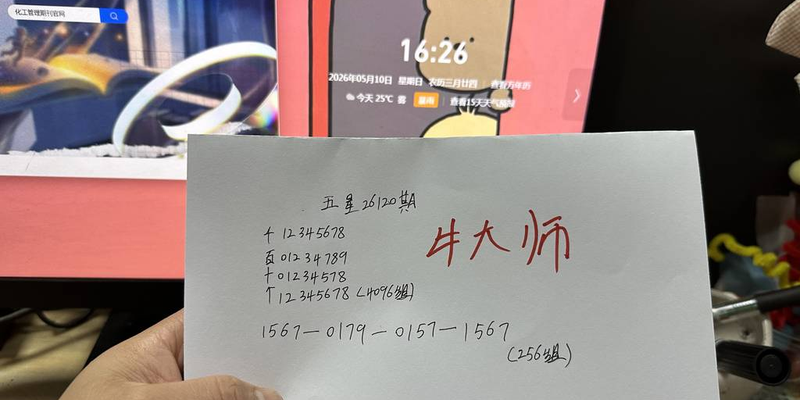 化工管理期刊官网
16:26
2026年05月10日 星期日 农历三月廿四 查看万年历
今天 25℃ 查看15天天气预报
五星26120期A
千 12345678
百 01234789
十 01234578
个 12345678 (4096组)
牛大师
1567—0179—0157—1567
(256组)